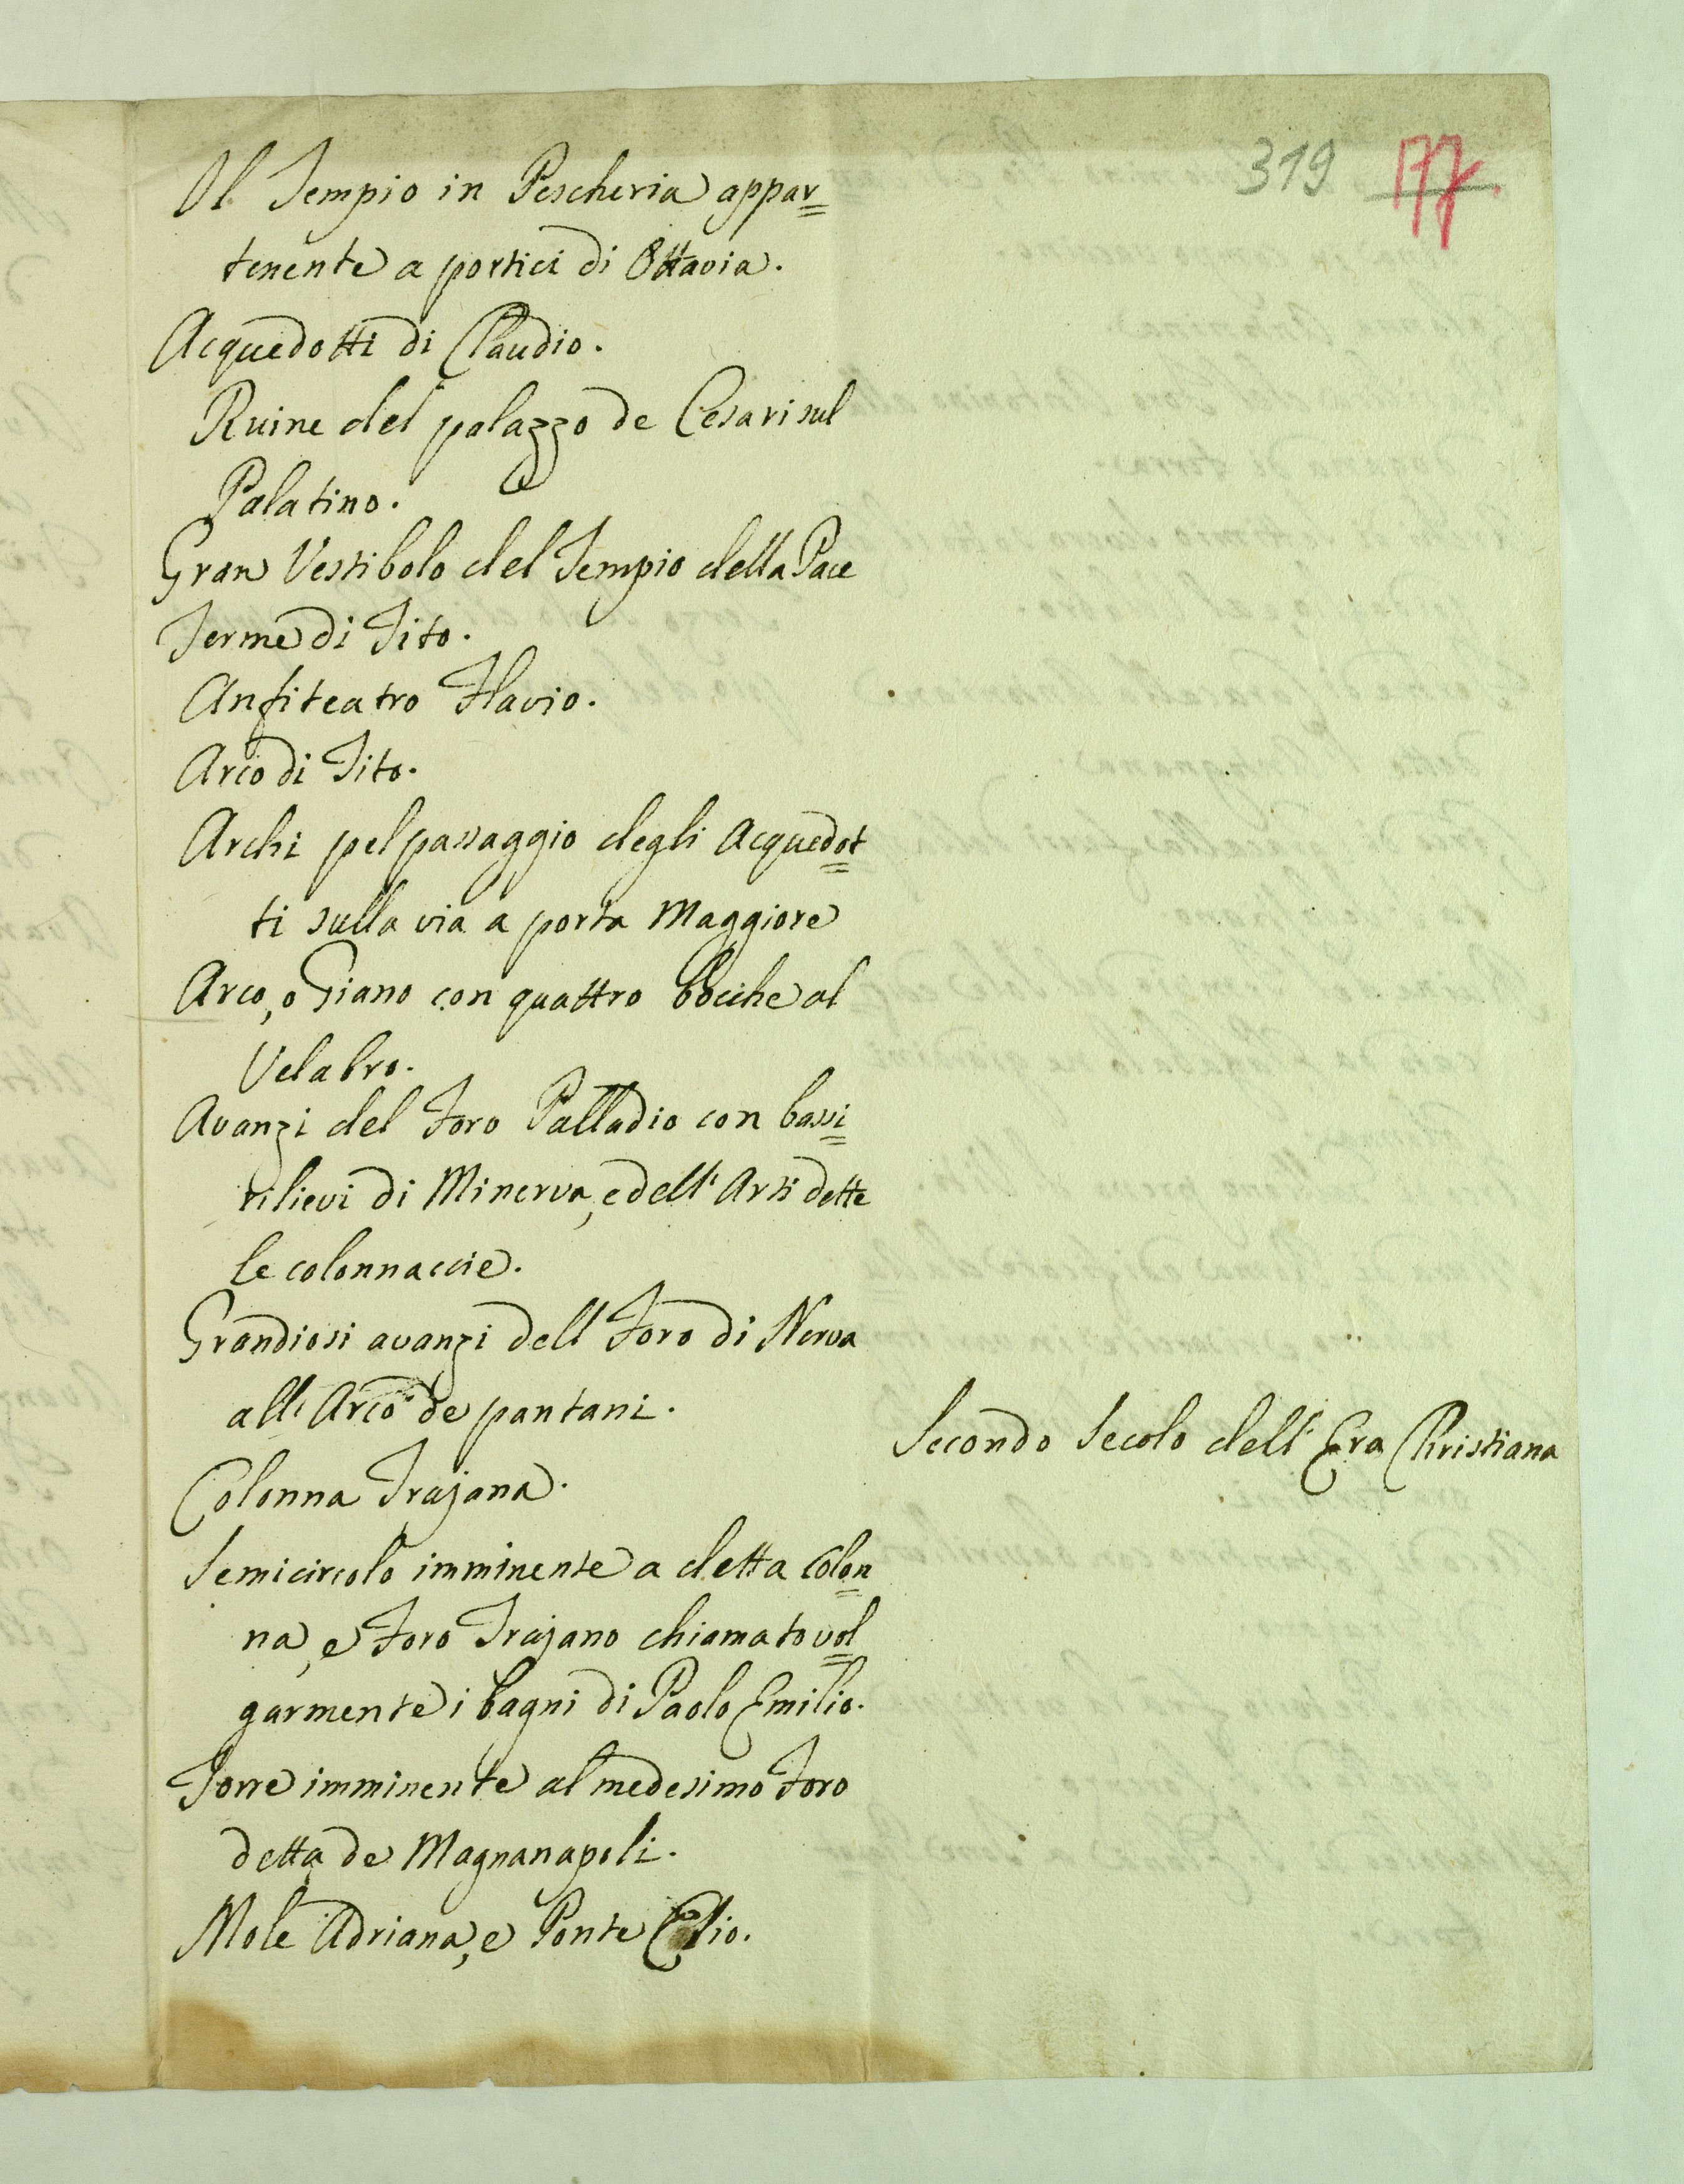 319 177.
Il Tempio in Pescheria appar=
tenente a portici di Ottavia.
Acquedotti di Claudio.
Ruine del palazzo de Cesari sul
Palatino.
Gran Vestibolo del Tempio della Pace
Terme di Tito.
Anfiteatro Flavio.
Arco di Tito.
Archi pel passaggio degli Acquedot=
ti sulla via a porta Maggiore
Arco, o Giano con quattro bocche al
Velabro.
Avanzi del Foro Palladio con bassi=
rilievi di Minerva, e dell' Arti dette
le colonnaccie.
Grandiosi avanzi dell Foro di Nerva
all' Arco de pantani.
Secondo Secolo dell' Era Christiana
Colonna Trajana.
Semicircolo imminente a detta Colon=
na, e Foro Trajano chiamato vol=
garmente i bagni di Paolo Emilio.
Torre imminente al medesimo Foro
detta de Magnanapoli.
Mole Adriana, e Ponte Elio.